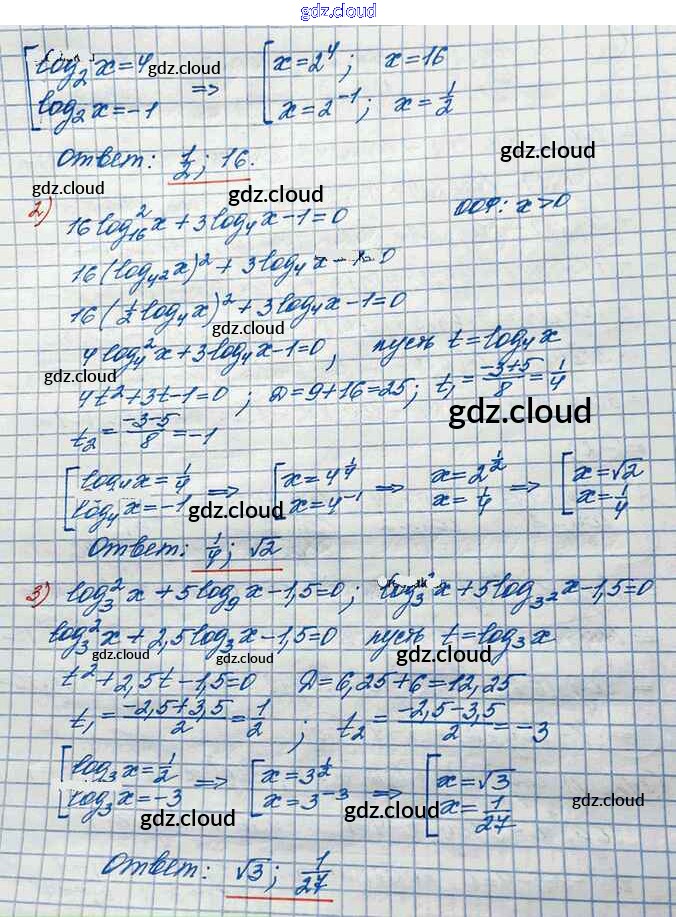 gdz.cloud
log₂ x = 4 gdz.cloud ⇒ x = 2⁴; x = 16
log₂ x = -1 x = 2⁻¹; x = 1/2
gdz.cloud
Ответ: 1/2; 16. gdz.cloud
gdz.cloud gdz.cloud
2) 16 log²₁₆ x + 3 log₄ x - 1 = 0 ООФ: x > 0
gdz.cloud
16 (log₄² x)² + 3 log₄ x - 1 = 0
16 (1/2 log₄ x)² + 3 log₄ x - 1 = 0
gdz.cloud
4 log₄² x + 3 log₄ x - 1 = 0, пусть t = log₄ x
gdz.cloud
4t² + 3t - 1 = 0; D = 9 + 16 = 25; t₁ = (-3+5)/8 = 1/4
gdz.cloud
t₂ = (-3-5)/8 = -1
log₄ x = 1/4 ⇒ x = 4^(1/4) ⇒ x = 2^(1/2) ⇒ x = √2
log₄ x = -1 x = 4⁻¹ x = 1/4 x = 1/4
gdz.cloud
Ответ: 1/4; √2
3) log₃² x + 5 log₉ x - 1,5 = 0; log₃² x + 5 log₃² x - 1,5 = 0
log₃² x + 2,5 log₃ x - 1,5 = 0 пусть t = log₃ x
gdz.cloud gdz.cloud gdz.cloud
t² + 2,5t - 1,5 = 0 D = 6,25 + 6 = 12,25
t₁ = (-2,5+3,5)/2 = 1/2; t₂ = (-2,5-3,5)/2 = -3
log₃ x = 1/2 ⇒ x = 3^(1/2) ⇒ x = √3
log₃ x = -3 x = 3⁻³ x = 1/27
gdz.cloud gdz.cloud gdz.cloud
Ответ: √3; 1/27